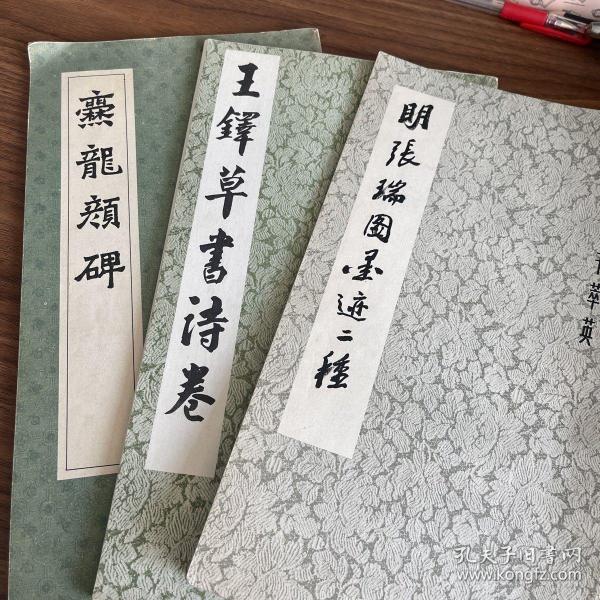 爨龍顔碑
王鐸草書诗卷
明張瑞图墨迹二種
萃英
孔夫子旧書网
www.kongfz.com